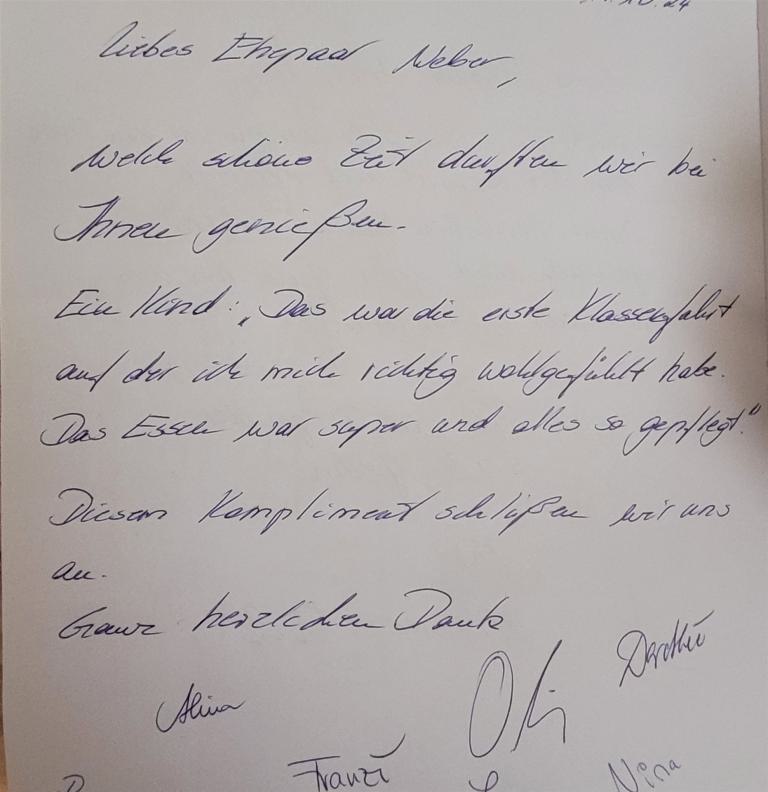 .10.24
liebes Ehepaar Weber,
welch schöne Zeit durften wir bei
Ihnen genießen.
Ein Kind: „Das war die erste Klassenfahrt
auf der ich mich richtig wohlgefühlt habe.
Das Essen war super und alles so gepflegt."
Diesem Kompliment schließen wir uns
an.
Ganz herzlichen Dank
Dorothee
Alina
Franzi Nina